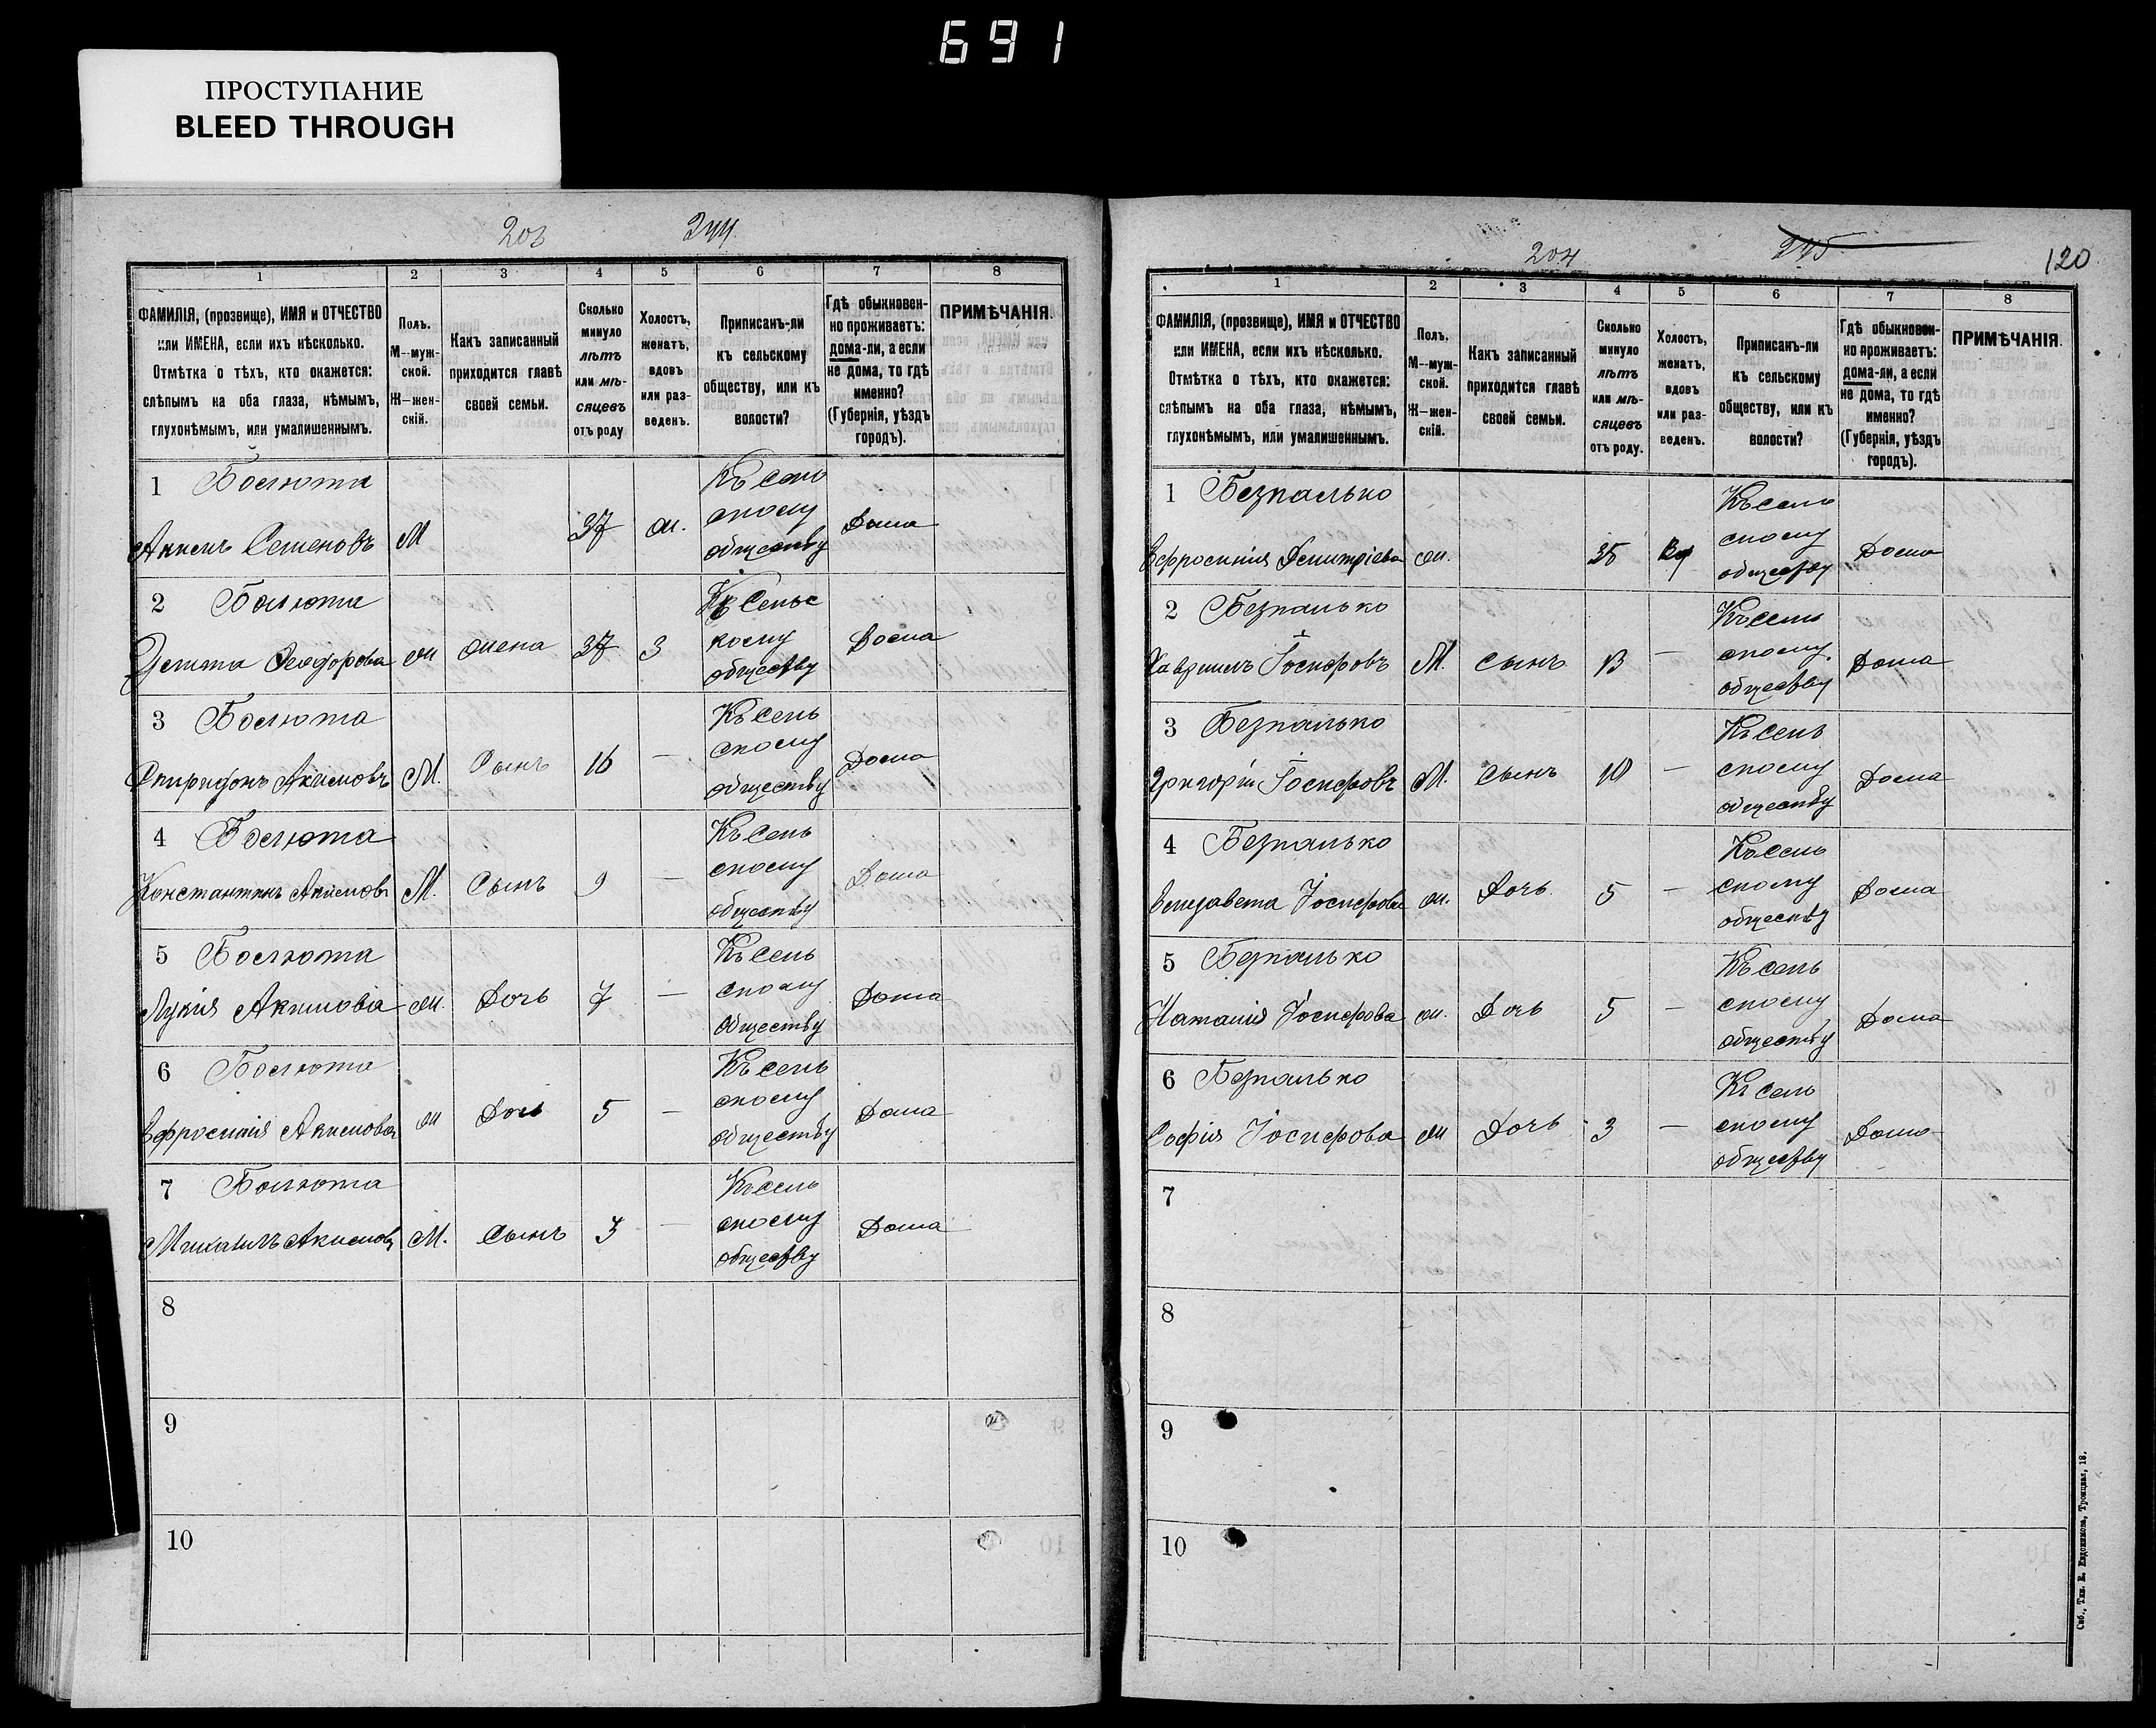 691
ПРОСТУПАНИЕ
BLEED THROUGH
203 244
1 2 3 4 5 6 7 8
ФАМИЛІЯ, (прозвище), ИМЯ и ОТЧЕСТВО
или ИМЕНА, если ихъ нѣсколько.
Отмѣтка о тѣхъ, кто окажется:
слѣпымъ на оба глаза, нѣмымъ,
глухонѣмымъ, или умалишеннымъ.
Полъ.
М--муж-
ской.
Ж--жен-
скій.
Какъ записанный
приходится главѣ
своей семьи.
Сколько
минуло
лѣтъ
или мѣ-
сяцевъ
отъ роду
Холостъ,
женатъ,
вдовъ
или раз-
веденъ.
Приписанъ-ли
къ сельскому
обществу, или къ
волости?
Гдѣ обыкновен-
но проживаетъ:
дома-ли, а если
не дома, то гдѣ
именно?
(Губернія, уѣздъ
городъ).
ПРИМѢЧАНІЯ.
1 Болюта
Акимъ Семеновъ М 37 ж. Къ сель
скому
обществу Дома
2 Болюта
Феодорова ж жена 37 З Къ Сельс
кому
обществу Дома
3 Болюта
Спиридонъ Акимовъ М. Сынъ 16 — Къ сель
скому
обществу Дома
4 Болюта
Константинъ Акимовъ М. Сынъ 9 — Къ Сель
скому
обществу Дома
5 Болюта
Лукія Акимова ж. Дочь 7 — Къ Сель
скому
обществу Дома
6 Болюта
Ефросинія Акимова ж Дочь 5 — Къ сель
скому
обществу Дома
7 Болюта
Михаилъ Акимовъ М. Сынъ 3 — Къ сель
скому
обществу Дома
8
9
10
204 245 120
1 2 3 4 5 6 7 8
ФАМИЛІЯ, (прозвище), ИМЯ и ОТЧЕСТВО
или ИМЕНА, если ихъ нѣсколько.
Отмѣтка о тѣхъ, кто окажется:
слѣпымъ на оба глаза, нѣмымъ,
глухонѣмымъ, или умалишеннымъ.
Полъ.
М--муж-
ской.
Ж--жен-
скій.
Какъ записанный
приходится главѣ
своей семьи.
Сколько
минуло
лѣтъ
или мѣ-
сяцевъ
отъ роду.
Холостъ,
женатъ,
вдовъ
или раз-
веденъ.
Приписанъ-ли
къ сельскому
обществу, или къ
волости?
Гдѣ обыкновен-
но проживаетъ:
дома-ли, а если
не дома, то гдѣ
именно?
(Губернія, уѣздъ
городъ).
ПРИМѢЧАНІЯ.
1 Безпалько
Ефросинія Демитріева ж. 35 Къ сель
скому
обществу Дома
2 Безпалько
Гавриилъ Іосифовъ М. Сынъ 13 — Къ сель
скому
обществу Дома
3 Безпалько
Григорій Іосифовъ М. Сынъ 10 — Къ сель
скому
обществу Дома
4 Безпалько
Елизавета Іосифова ж. Дочь 5 — Къ сель
скому
обществу Дома
5 Безпалько
Наталія Іосифова ж. Дочь 5 — Къ сель
скому
обществу Дома
6 Безпалько
Софія Іосифова ж Дочь 3 — Къ сель
скому
обществу Дома
7
8
9
10
Спб., Тип. Е. Евдокимова, Троицкая, 18.